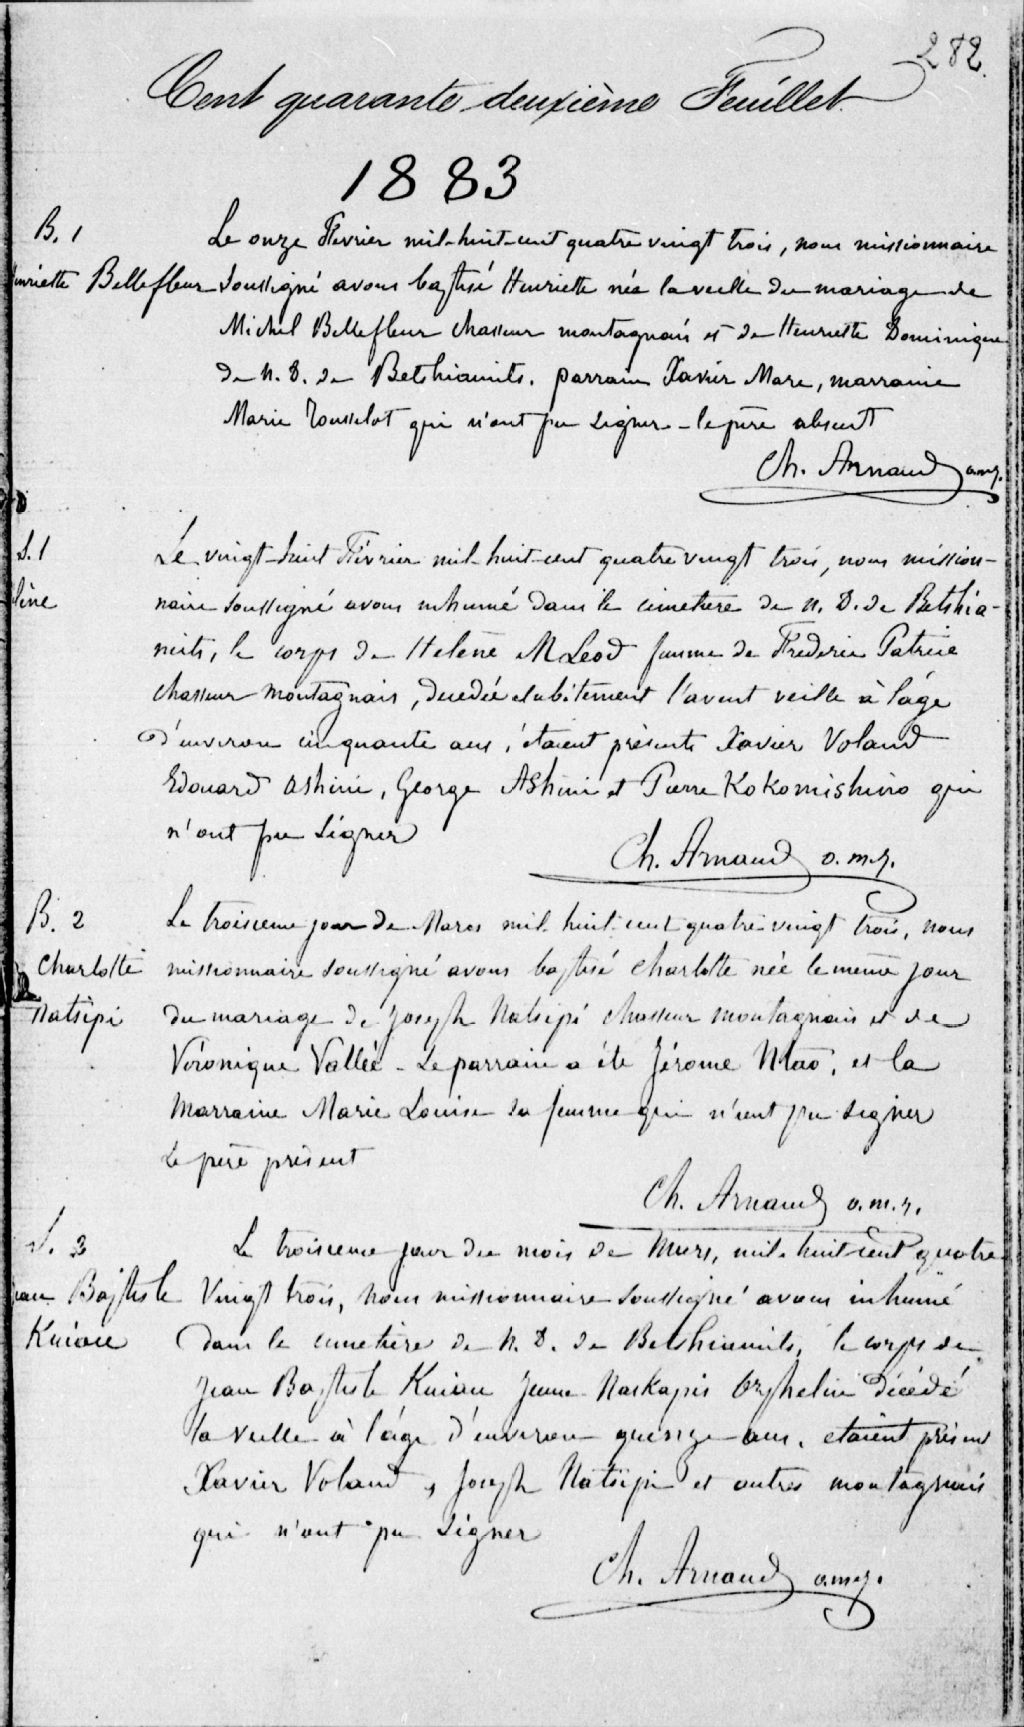 282.
Cent quarante deuxième Feuillet
1883
B. 1
Henriette Bellefleur
Le onze Fevrier mil-huit-cent quatre vingt trois, nous missionnaire
soussigné avons baptisé Henriette née la veille du mariage de
Michel Bellefleur chasseur montagnais et de Henriette Dominique
de N. D. de Betshiamits. parrain Xavier Marc, marraine
Marie Rousselot qui n'ont pu signer - le père absent
Ch. Arnaud o.m.j.
S. 1
line
Le vingt-huit Février mil-huit-cent quatre vingt trois, nous mission-
naire soussigné avons inhumé dans le cimetière de N. D. de Betshia-
mits, le corps de Helene McLeod femme de Frederic Patrice
chasseur montagnais, decedée subitement l'avant veille à l'âge
d'environ cinquante ans, étaient présents Xavier Voland
Edouard Ashini, George Ashini et Pierre Kokomishino qui
n'ont pu signer
Ch. Arnaud o.m.j.
B. 2
Charlotte
Natsipi
Le troisieme jour de Mars mil-huit-cent quatre vingt trois, nous
missionnaire soussigné avons baptisé Charlotte née le même jour
du mariage de Joseph Natsipi chasseur montagnais et de
Véronique Vallée - Le parrain a été Jérome Ntao, et la
marraine Marie Louise sa femme qui n'ont pu signer
Le père présent
Ch. Arnaud o.m.j.
S. 3
Jean Baptiste
Kuiau
Le troisieme jour du mois de Mars, mil-huit-cent quatre
Vingt trois, nous missionnaire soussigné avons inhumé
dans le cimetière de N. D. de Betshiamits, le corps de
Jean Baptiste Kuiau jeune Naskapis Orphelin décédé
la veille à l'âge d'environ quinze ans, étaient présent
Xavier Voland, Joseph Natsipi et autres montagnais
qui n'ont pu signer
Ch. Arnaud o.m.j.